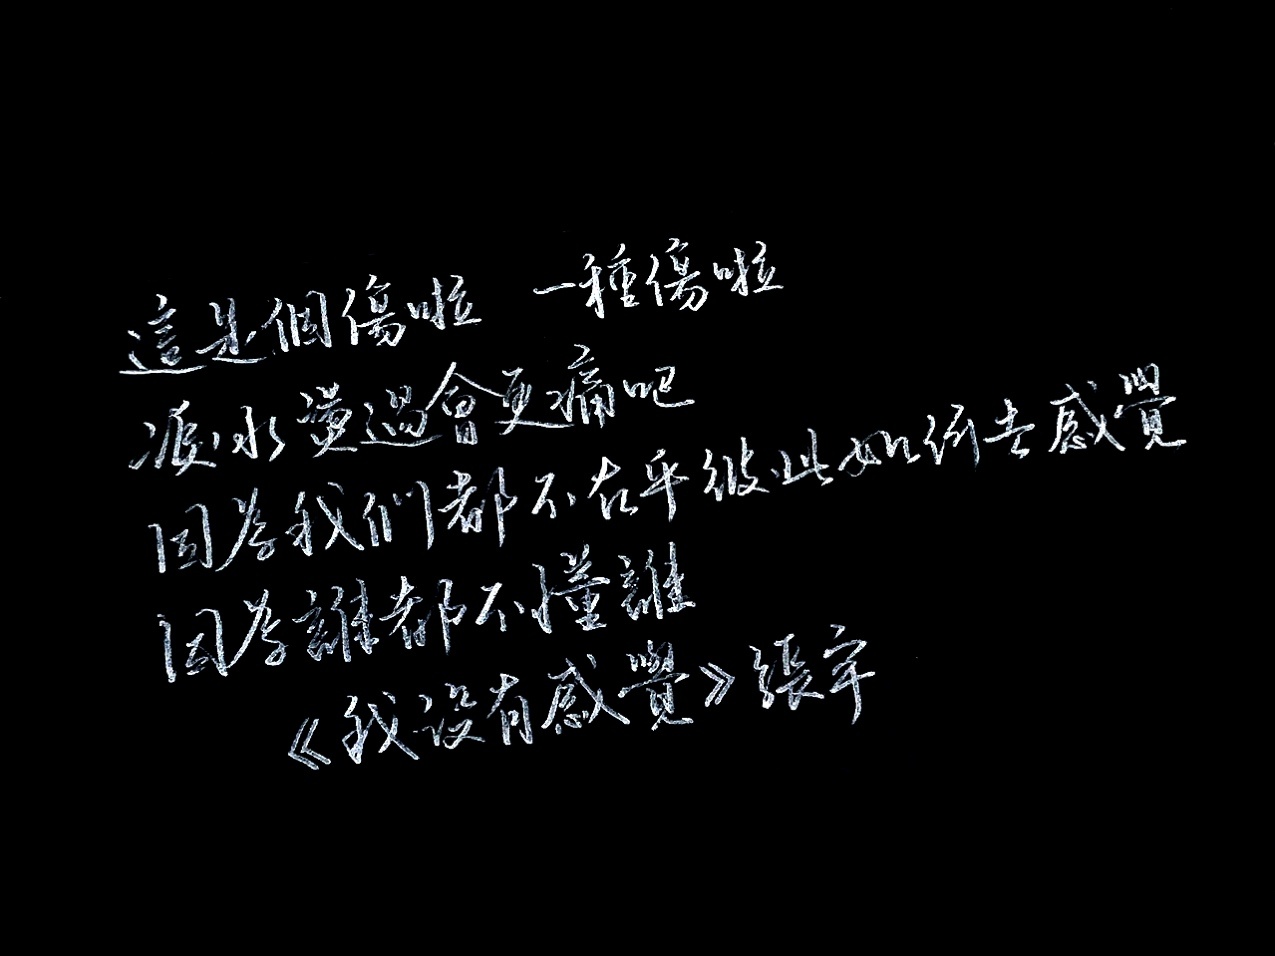 這是個傷啦 一種傷啦
淚水燙過會更痛吧
因為我們都不在乎彼此如何去感覺
因為誰都不懂誰
《我沒有感覺》張宇